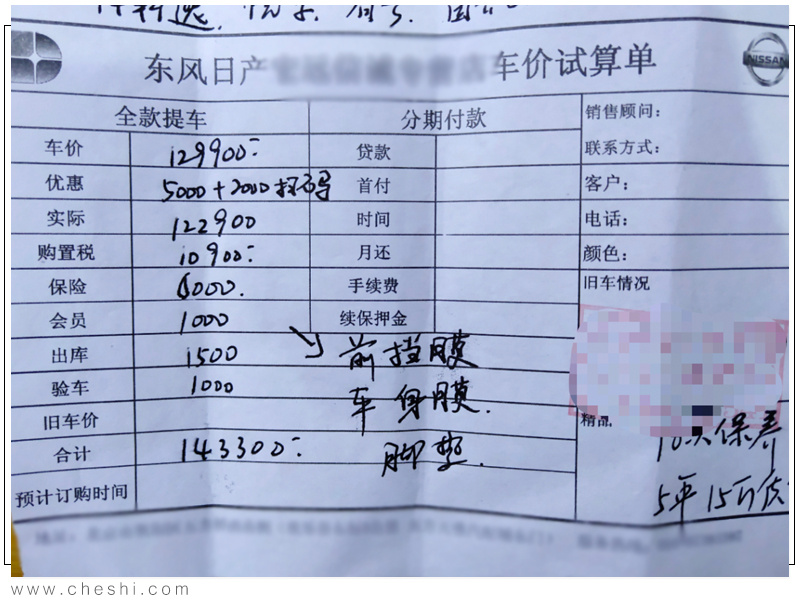 东风日产 车价试算单
NISSAN
全款提车 分期付款 销售顾问：
车价 129900 贷款 联系方式：
优惠 5000+2000 扫码 首付 客户：
实际 122900 时间 电话：
购置税 10900 月还 颜色：
保险 6000. 手续费 旧车情况
会员 1000 续保押金
出库 1500 前挡膜
验车 1000 车身膜.
旧车价 精品
合计 143300 脚垫.
10次保养
预计订购时间 5年15万
www.cheshi.com